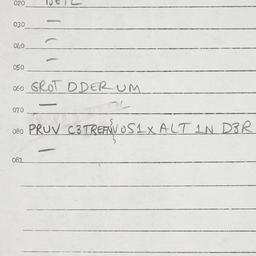 020
030
040
050
060 GROT DDER UM
070
080 PRUV C3TREFN VOS1x ALT 1N D3R
081